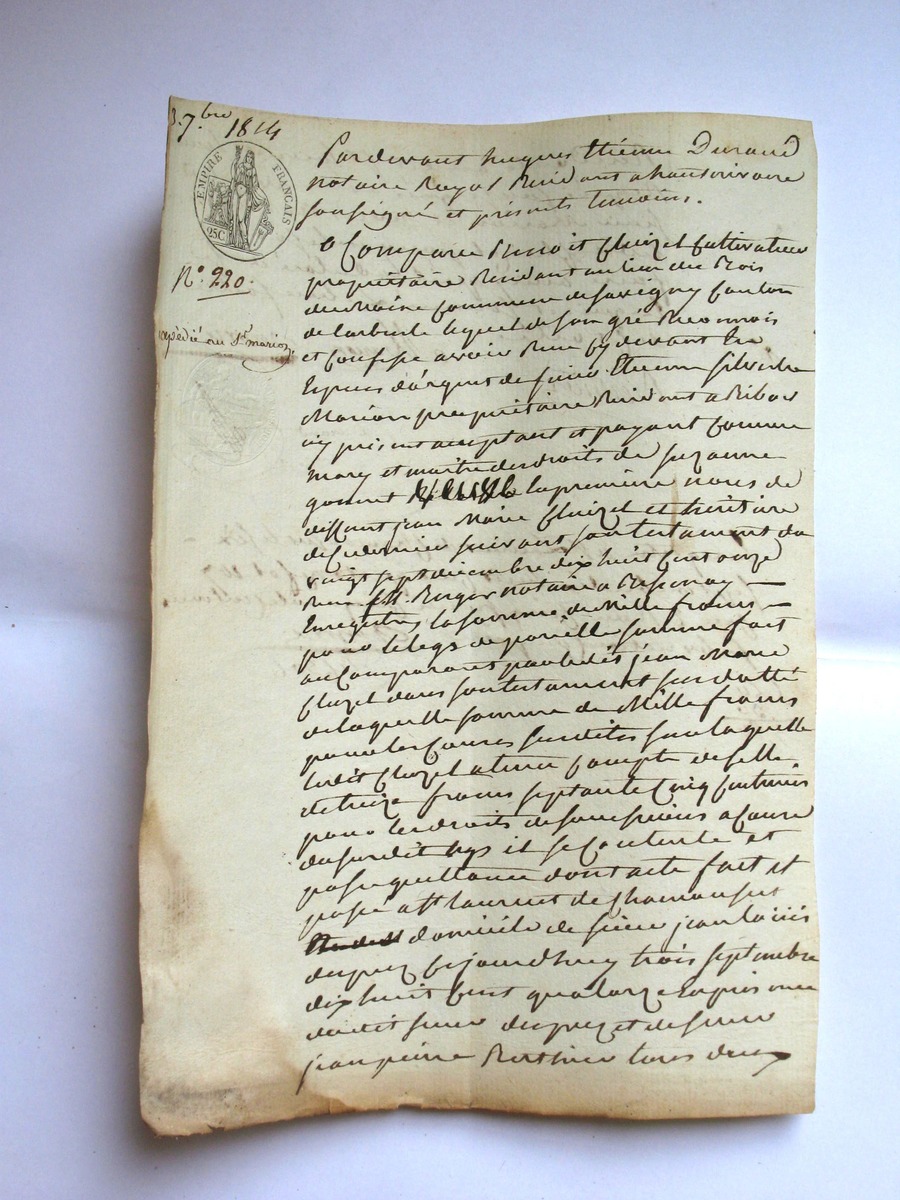 3. 7.bre 1814
EMPIRE FRANÇAIS
25C
N.° 220.
expédié au Sr. marion
Pardevant hugues Etienne Durand
notaire Royal Residant a hauterivoire
soussigné et présents temoins.
a Comparu Benoit Clozel Cultivateur
propriétaire Residant au lieu du Bois
commune de savigny Canton
de Larbresle lequel de son gré Reconnois
et Confesse avoir Reçu Cy devant En
Especes d'argent de sieur Etienne Silvestre
Marion propriétaire Residant a Ribost
icy present acceptant et payant Comme
mary et maitre des droits de suzanne
la première noces de
deffunt jean Marie Clozel et heritiere
de Cedernier suivant son testament du
vingt sept decembre dix huit Cent onze
Reçu Mr. notaire a
Enregistré la somme de Mille francs
pour le legs de pareille somme fait
au Comparant par ledit jean Marie
Clozel dans son testament susdatté
de laquelle somme de Mille francs
pour les Causes susdites sur laquelle
ledit Clozel a tenu Compte de Celle
de treize francs septante Cinq Centimes
pour les droits de succession a Cause
du susdit legs il se Contente et
passe quittance dont acte fait et
passé a St. laurent de Chamousset
domicile de sieur jean louis
dupuy Cejourdhuy trois septembre
dix huit Cent quatorze En présence
dudit sieur dupuy et de sieur
jean pierre Berthier tous deux